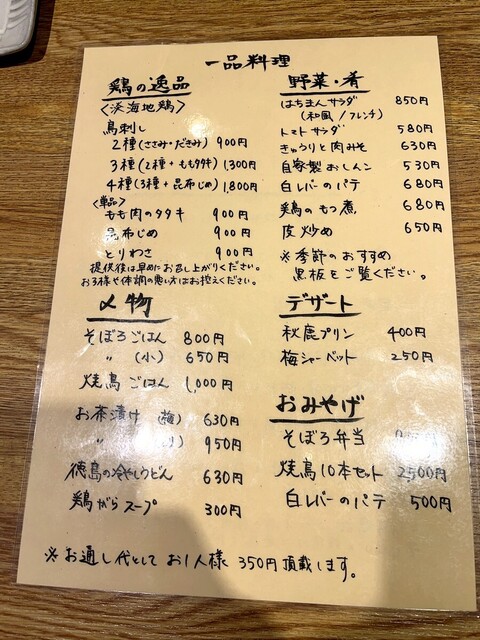 一品料理
鶏の逸品
〈淡海地鶏〉
鳥刺し
2種(ささみ・だきみ) 900円
3種(2種+ももタタキ) 1,300円
4種(3種+昆布じめ) 1,800円
〈単品〉
もも肉のタタキ 900円
昆布じめ 900円
とりわさ 900円
提供後は早めにお召し上がりください。
お子様や体調の悪い方はお控えください。
〆物
そぼろごはん 800円
〃 (小) 650円
焼鳥ごはん 1,000円
お茶漬け (梅) 630円
〃 950円
徳島の冷やしうどん 630円
鶏がらスープ 300円
野菜・肴
はちまんサラダ 850円
(和風/フレンチ)
トマトサラダ 580円
きゅうりと肉みそ 630円
自家製おしんこ 530円
白レバーのパテ 680円
鶏のもつ煮 680円
皮炒め 650円
※季節のおすすめ
黒板をご覧ください。
デザート
秋鹿プリン 400円
梅シャーベット 250円
おみやげ
そぼろ弁当
焼鳥10本セット 2500円
白レバーのパテ 500円
※お通し代として お1人様 350円頂戴します。